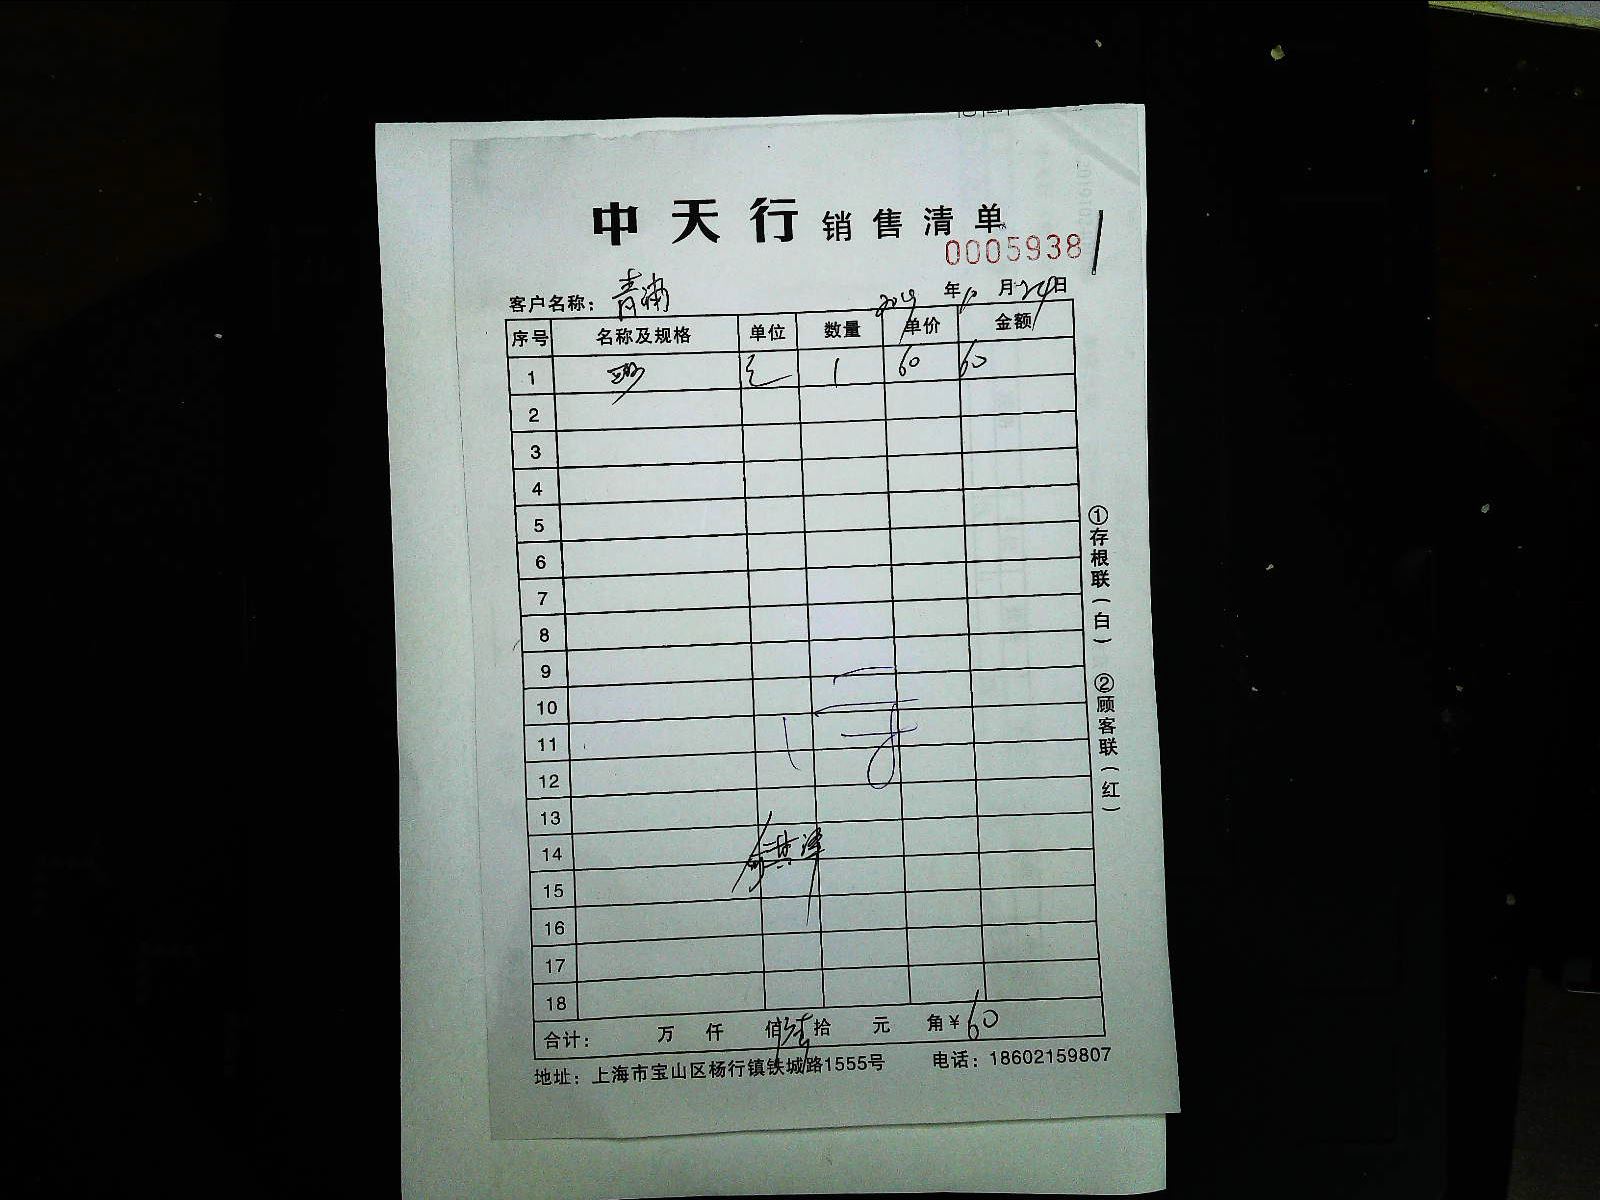 中天行销售清单
0005938
客户名称：青浦 2019年10月24日
序号 名称及规格 单位 数量 单价 金额
1 1 60 60
2
3
4
5
6
7
8
9
10
11
12
13
14
15
16
17
18
合计： 万 仟 佰 拾 元 角￥60
地址：上海市宝山区杨行镇铁城路1555号 电话：18602159807
①存根联（白） ②顾客联（红）